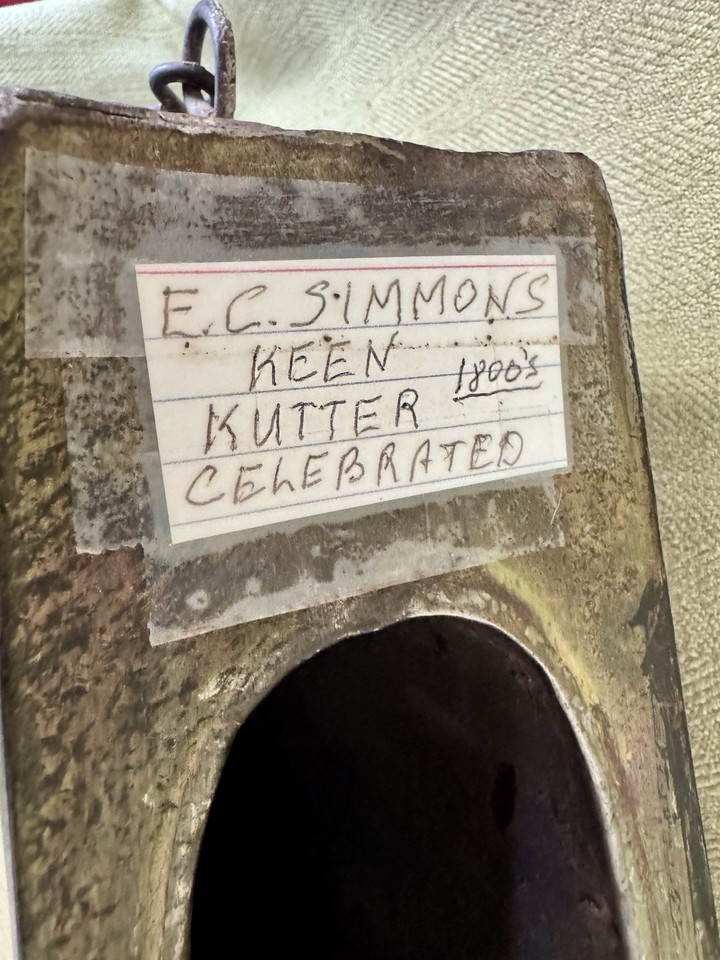 E.C. SIMMONS
KEEN
1800's
KUTTER
CELEBRATED